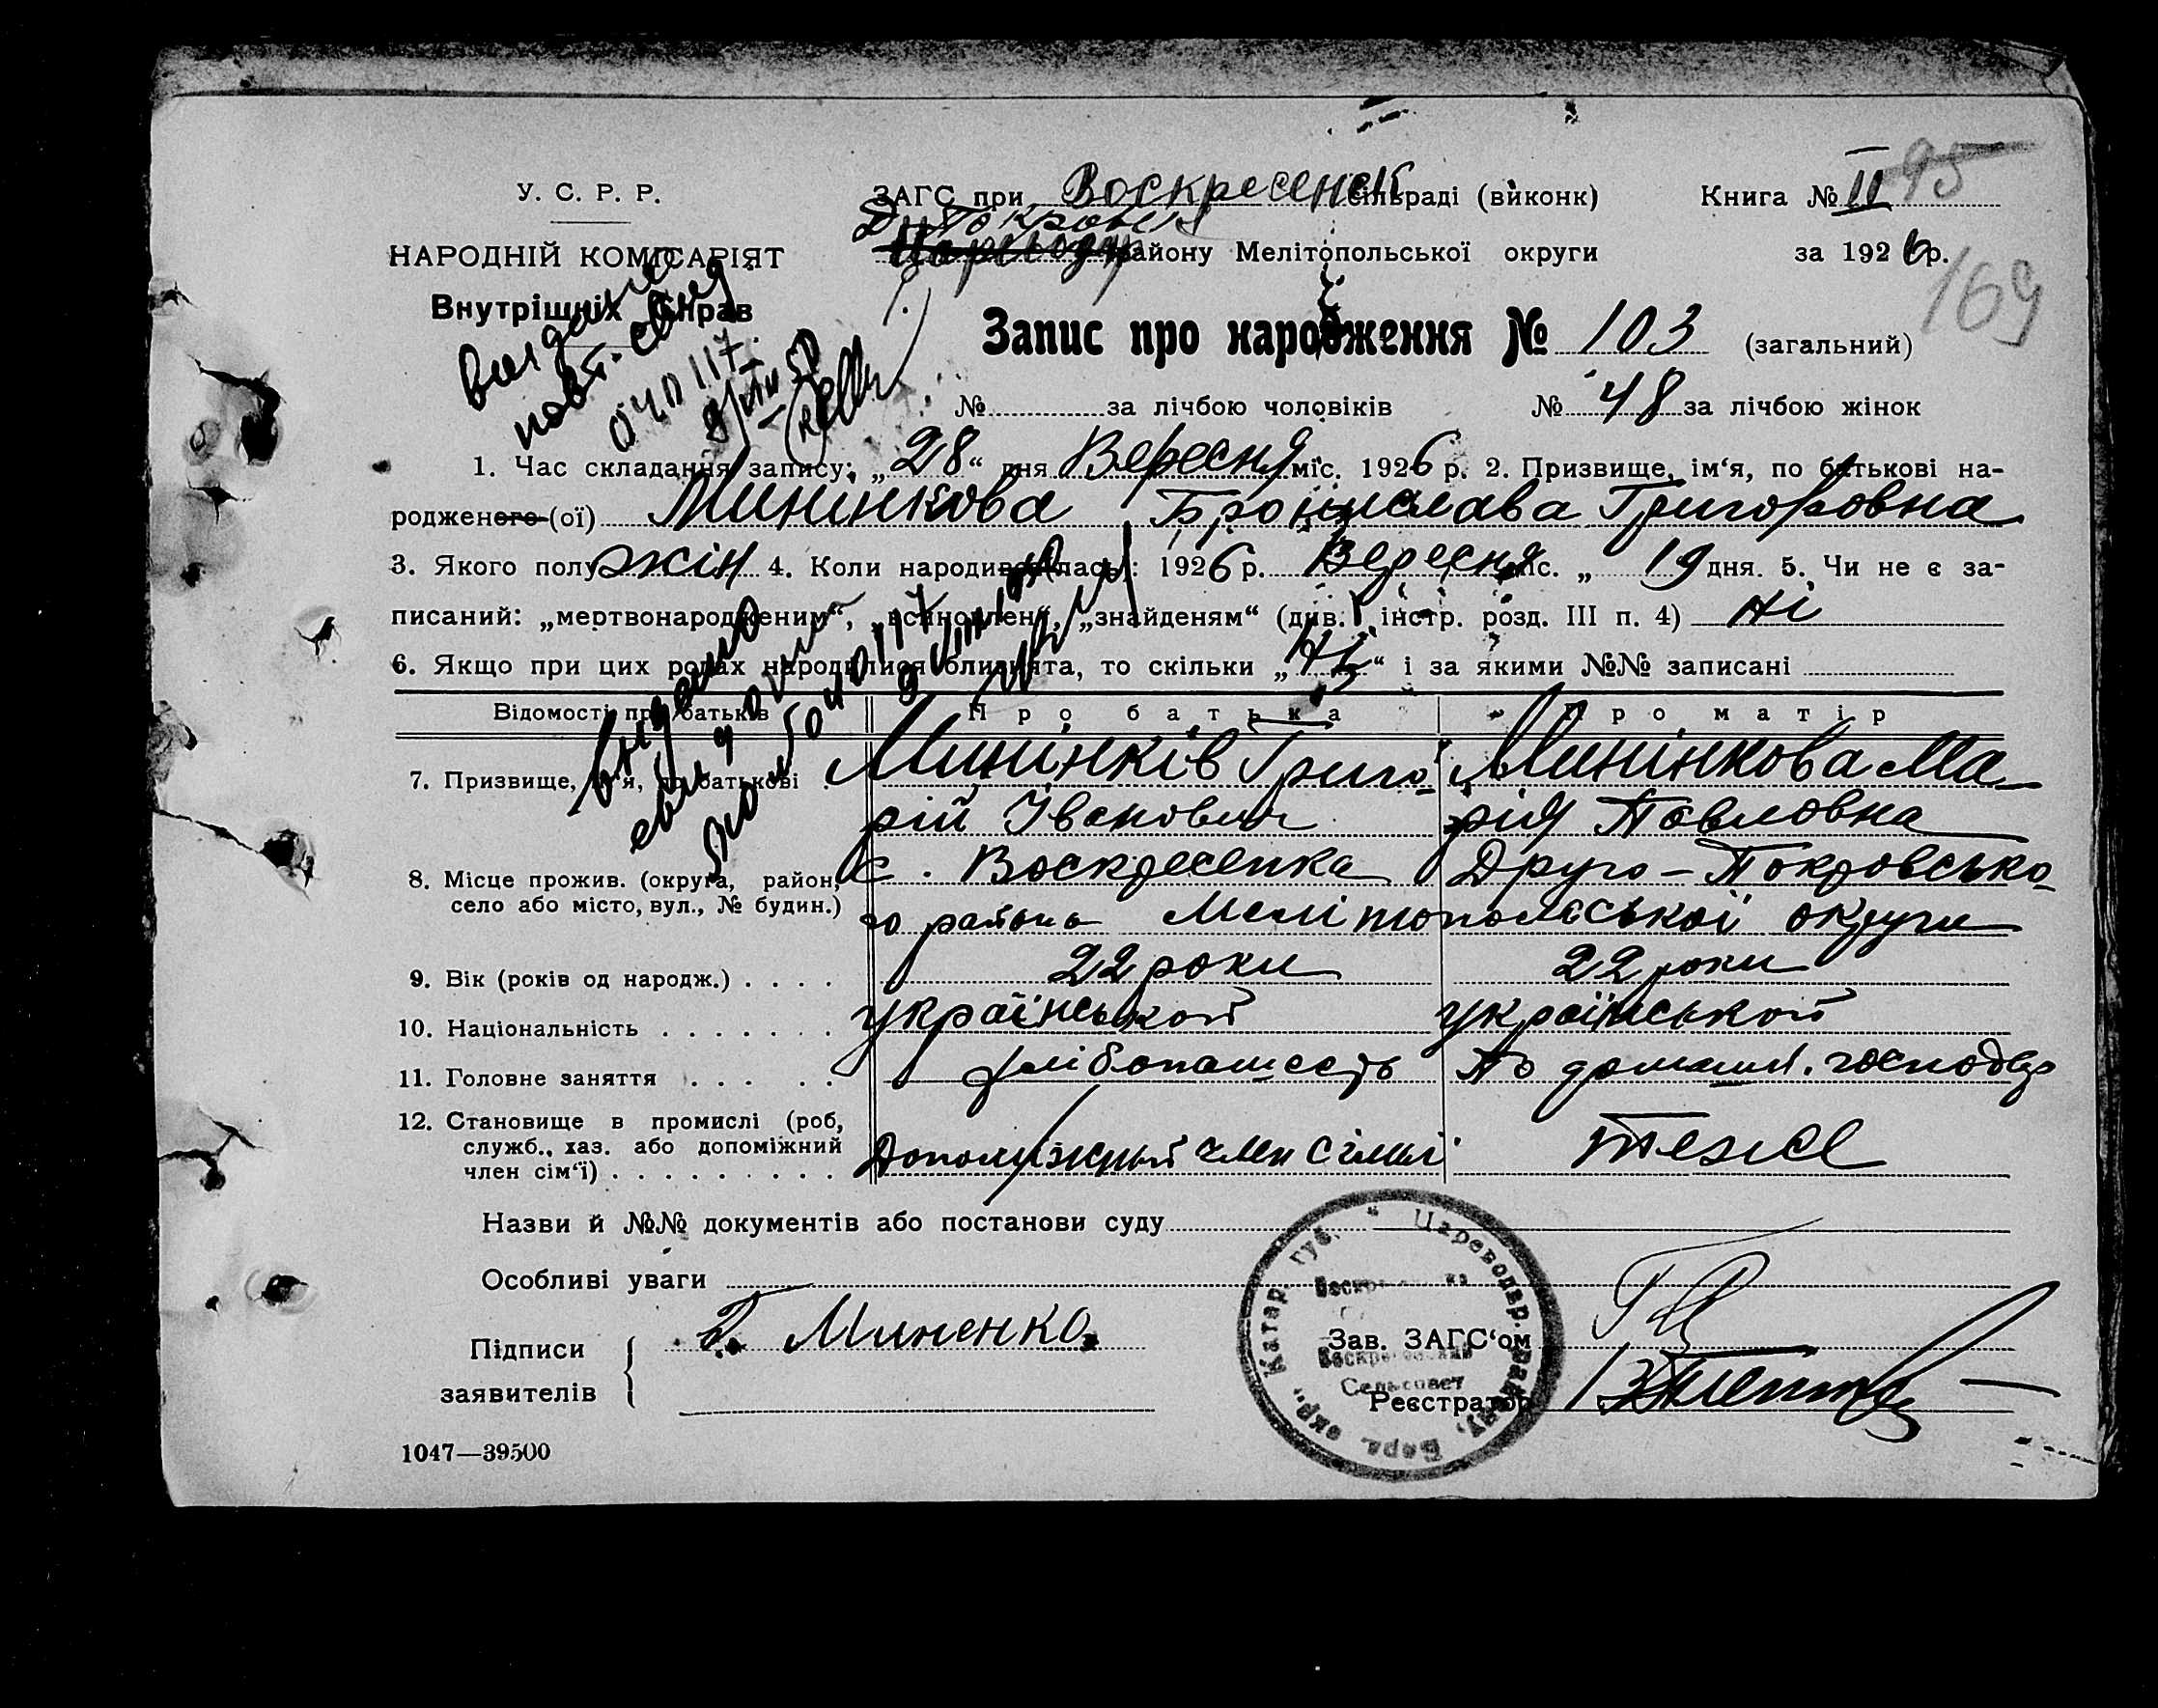 У. С. Р. Р.
НАРОДНІЙ КОМІСАРІЯТ
Внутрішніх Справ
ЗАГС при Воскресенск сільраді (виконк)
Др. Покровск
району Мелітопольської округи
Книга № II 95
за 1926 р.
169
Запис про народження № 103 (загальний)
№ за лічбою чоловіків № 48 за лічбою жінок
видано
повт. св.
040117
1. Час складання запису: „28“ дня Вересня міс. 1926 р. 2. Призвище, ім‘я, по батькові на-
родженого (ої) Мининкова Броніислава Григоровна
3. Якого полу жін 4. Коли народився (лась): 1926 р. Вересня міс. „ 19 дня. 5. Чи не є за-
писаний: „мертвонародженим“, „всиновлен“, „знайденям“ (див. інстр. розд. III п. 4) Ні
6. Якщо при цих родах народилися близнята, то скільки „Ні“ і за якими №№ записані
видано
040117
Відомості про батьків Про батька Про матір
7. Призвище, ім‘я, по батькові Минінків Григо- Минінкова Ма-
рій Іванович рія Павловна
8. Місце прожив. (округа, район, с. Воскресенка Друго-Покровсько-
село або місто, вул., № будин.) го района Мелітопольської округи
9. Вік (років од народж.) 22 роки 22 роки
10. Національність української української
11. Головне заняття хлібопашесть по домашн. господар
12. Становище в промислі (роб,
служб., хаз. або допоміжний
член сім‘ї) Допоміжный член сімьі теже
Назви й №№ документів або постанови суду
Особливі уваги
Підписи
заявителів
Г. Миненко
Зав. ЗАГС‘ом
Реєстратор
Катер. губ. Цареводар. району, Берд. окр.
Воскресенский
Сельсовет
1047—39500